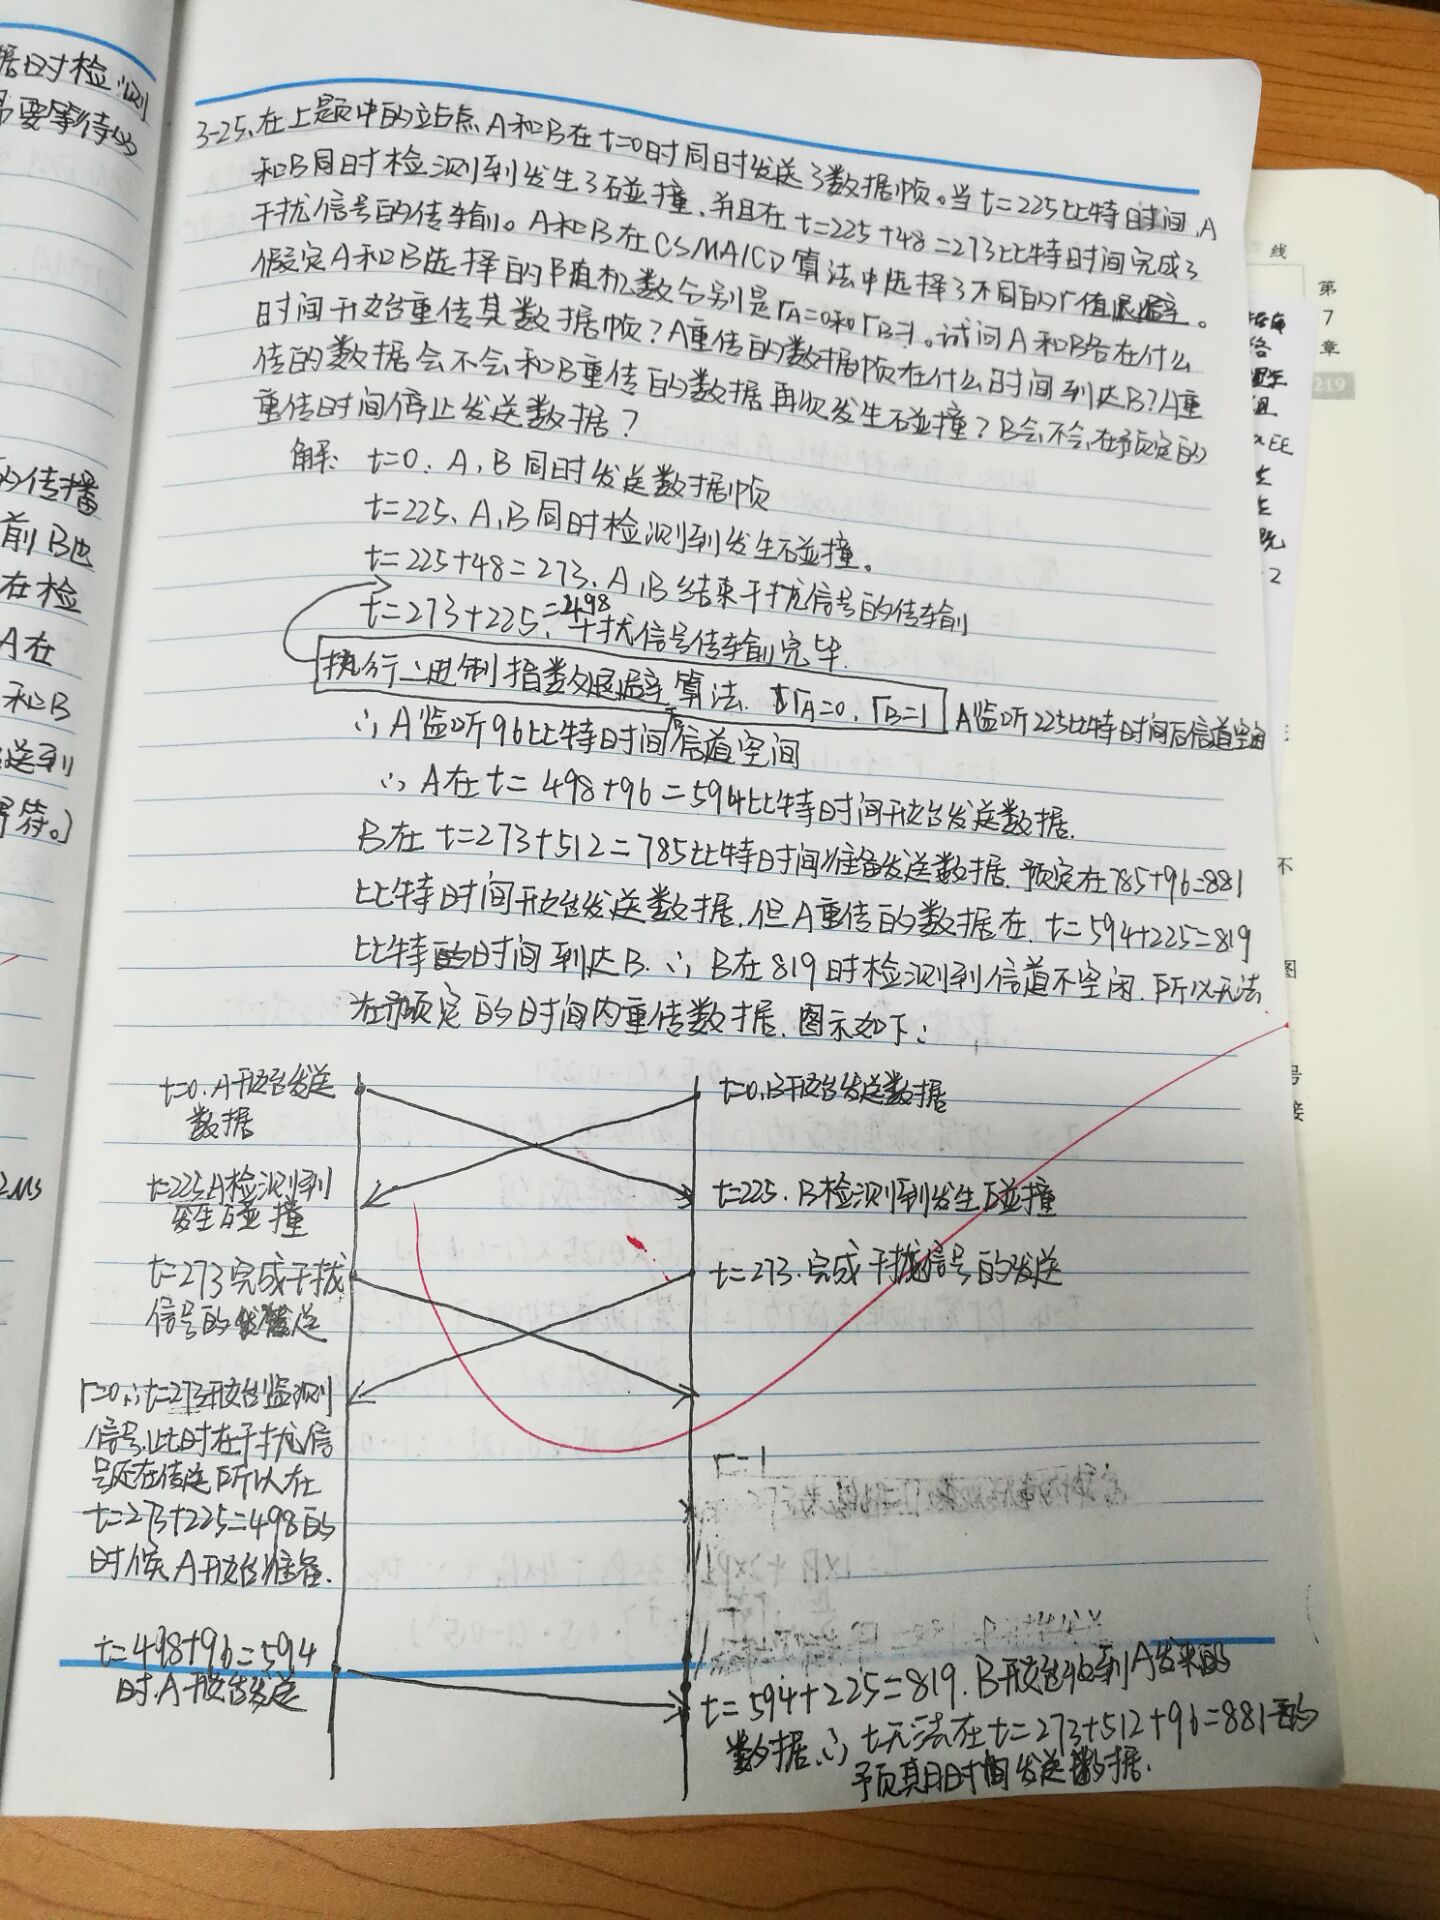 据时检测
需要等待的
的传播
前B也
在检
A在
和B
送到
等待。)
3-25、在上题中的站点A和B在t=0时同时发送了数据帧。当t=225比特时间,A
和B同时检测到发生了碰撞,并且在t=225+48=273比特时间完成了
干扰信号的传输。A和B在CSMA/CD算法中选择了不同的r值退避。
假定A和B选择的随机数分别是rA=0和rB=1。试问A和B各在什么
时间开始重传其数据帧?A重传的数据帧在什么时间到达B?A重
传的数据会不会和B重传的数据再次发生碰撞?B会不会在预定的
重传时间停止发送数据?
解: t=0. A、B同时发送数据帧
t=225、A、B同时检测到发生碰撞。
t=225+48=273、A、B结束干扰信号的传输
t=273+225=498、干扰信号传输完毕.
执行二进制指数退避算法. rA=0. rB=1 A监听225比特时间后信道空闲
∴A监听96比特时间后信道空闲
∴A在t=498+96=594比特时间开始发送数据.
B在t=273+512=785比特时间准备发送数据.预定在785+96=881
比特时间开始发送数据.但A重传的数据在.t=594+225=819
比特的时间到达B.∴B在819时检测到信道不空闲.所以无法
在预定的时间内重传数据.图示如下:
t=0.A开始发送
数据
t=0.B开始发送数据
t=225.A检测到
发生碰撞
t=225.B检测到发生碰撞
t=273完成干扰
信号的发送
t=273.完成干扰信号的发送
r=0,∴t=273开始监测
信号.此时在干扰信
号还在传送所以在
t=273+225=498的
时候A开始准备.
r=1
t=498+96=594
时.A开始发送
t=594+225=819.B开始收到A发来的
数据.∴无法在t=273+512+96=881的
预期时间发送数据.
线
第
7
章
219
不
图
号
接